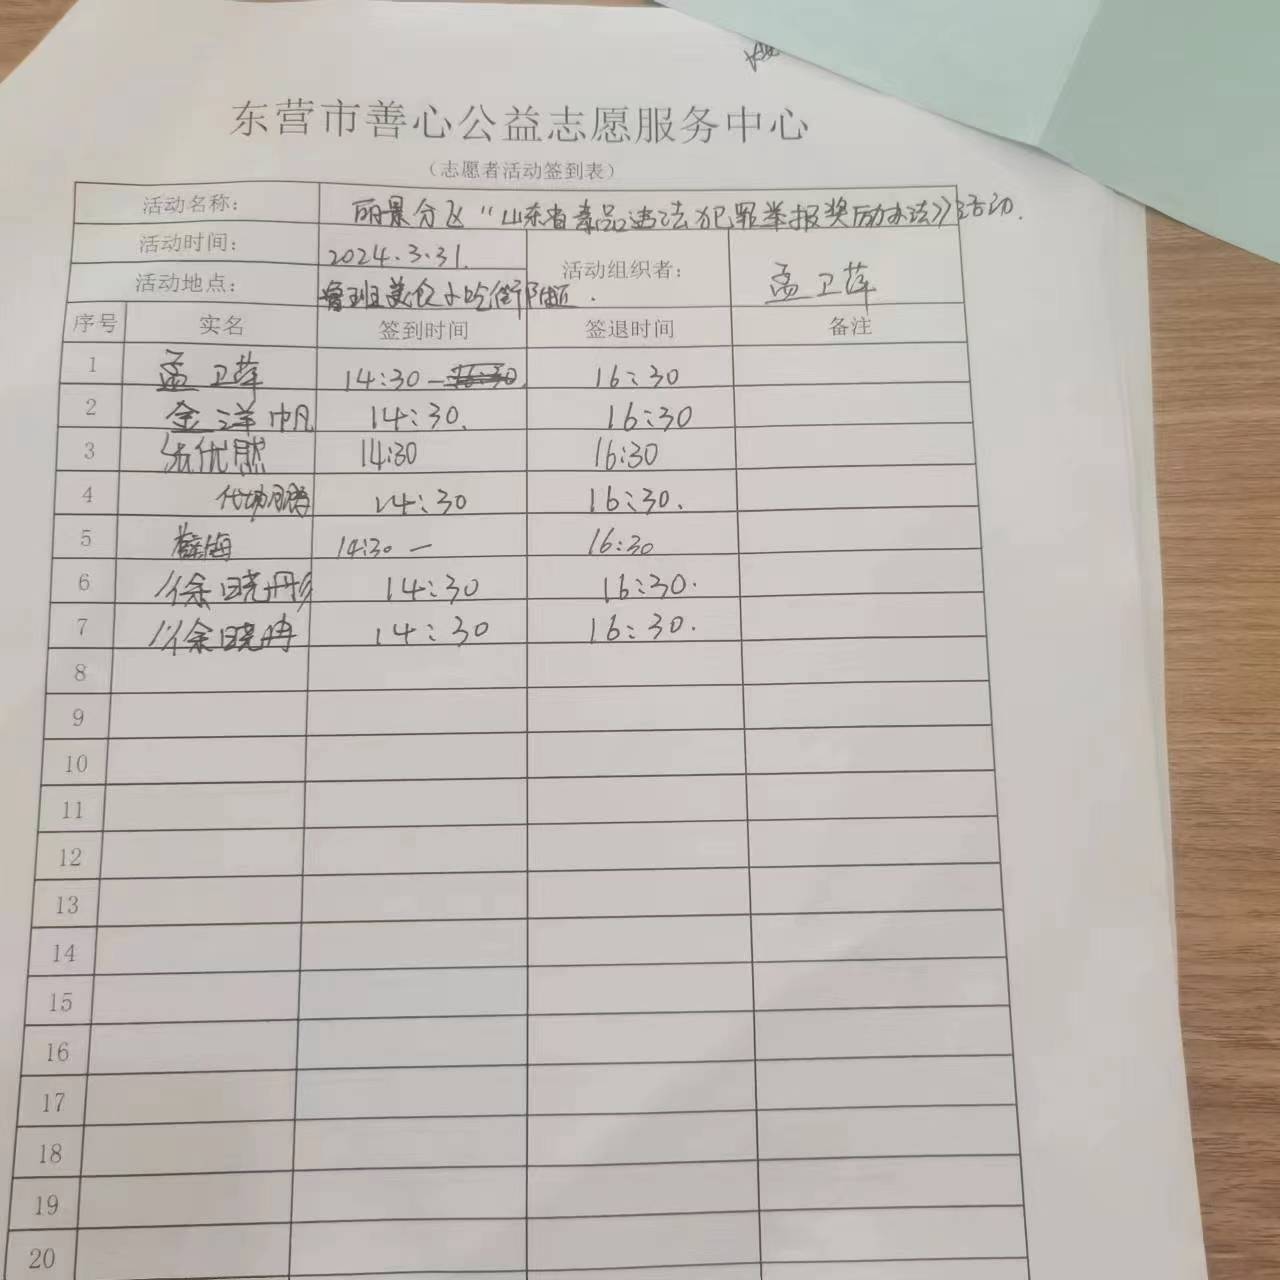 东营市善心公益志愿服务中心
（志愿者活动签到表）
活动名称： 丽景分飞“山东省毒品违法犯罪举报奖励办法》活动.
活动时间： 2024.3.31. 活动组织者： 孟卫萍
活动地点： 鲁班美食小吃街附近.
序号 实名 签到时间 签退时间 备注
1 孟卫萍 14:30- 16:30
2 金洋帆 14:30. 16:30
3 优然 14:30 16:30
4 14:30 16:30.
5 海 14:30 — 16:30
6 徐晓彤 14:30 16:30.
7 徐晓冉 14:30 16:30.
8
9
10
11
12
13
14
15
16
17
18
19
20